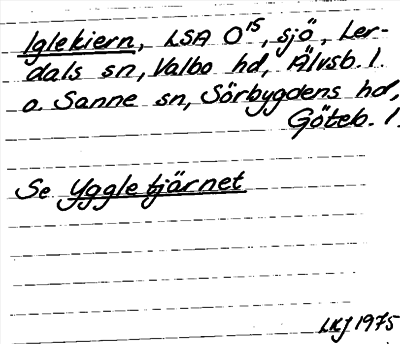 Iglekiern, LSA O15, sjö, Ler-
dals sn, Valbo hd, Älvsb. l.
o. Sanne sn, Sörbygdens hd,
Göteb. l.
Se Yggletjärnet
LKJ 1975